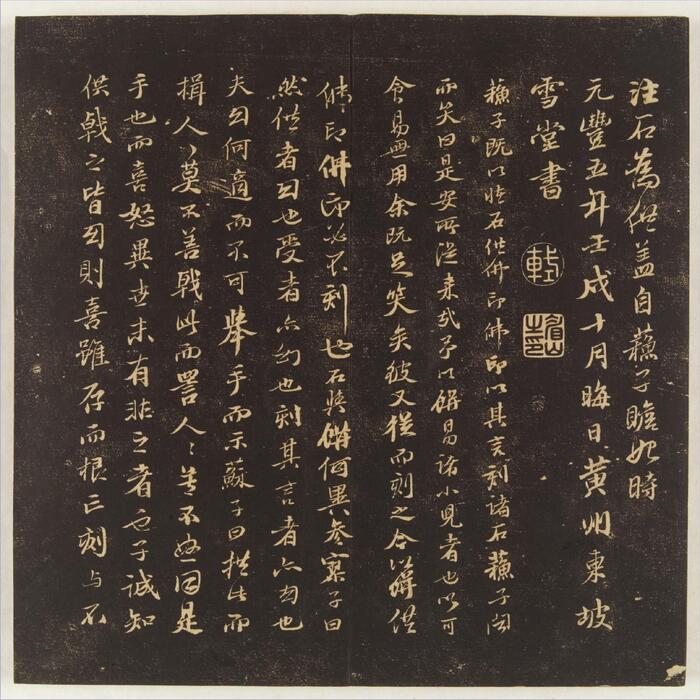 注石為供蓋自蘇子瞻始時
元豐五年壬戌十月晦日黃州東坡
雪堂書
蘇子既以怪石供佛印佛印以其言刻諸石蘇子聞
而笑曰是安所從來哉予以餅易諸小兒者也以可
食易無用余既足笑矣彼又從而刻之今以餅供
佛印佛印必不刻也石與餅何異參寥子曰
然供者幻也受者亦幻也刻其言者亦幻也
夫幻何適而不可舉手而示蘇子曰拱此而
揖人人莫不善戟此而詈人人莫不怒同是
手也而喜怒異世未有非之者也子誠知
供戟之皆幻則喜雖存而根亡刻與不